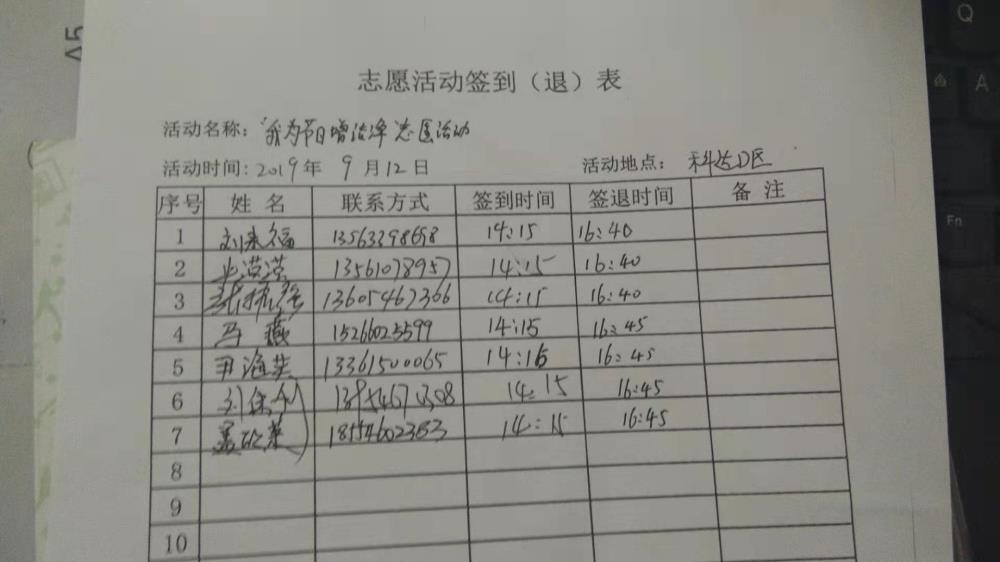 A5
Q
A
Fn
志愿活动签到（退）表
活动名称：我为节日增洁净志医活动
活动时间：2019年 9月12日 活动地点：科达D区
序号 姓名 联系方式 签到时间 签退时间 备注
1 刘来福 14:15 16:40
2 13561078957 14:15 16:40
3 13605467366 14:15 16:40
4 马薇 15266025599 14:15 16:45
5 尹海英 13361500065 14:16 16:45
6 刘保利 14:15 16:45
7 14:15 16:45
8
9
10